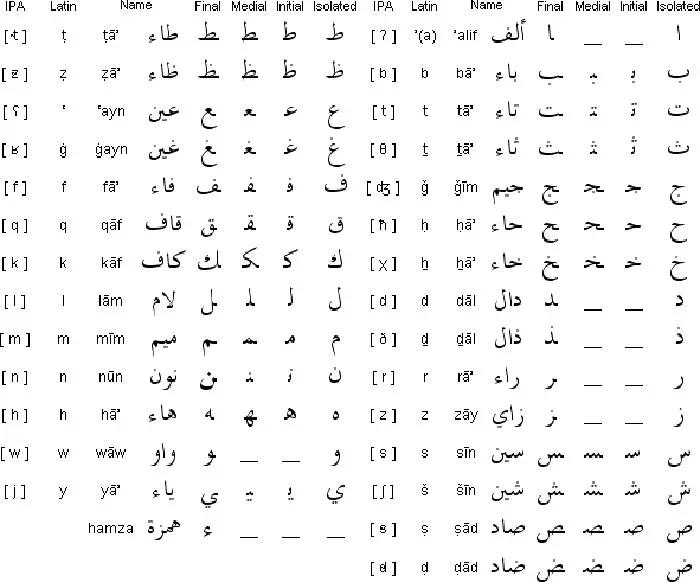 IPA Latin Name Final Medial Initial Isolated IPA Latin Name Final Medial Initial Isolated
ṭ ṭā’ طاء ـط ـطـ طـ ط [ʔ] ’(a) ’alif ألف ـا __ __ ا
ẓ ẓā’ ظاء ـظ ـظـ ظـ ظ [b] b bā’ باء ـب ـبـ بـ ب
[ʕ] ‘ ‘ayn عين ـع ـعـ عـ ع [t] t tā’ تاء ـت ـتـ تـ ت
[ʁ] ġ ġayn غين ـغ ـغـ غـ غ [θ] ṯ ṯā’ ثاء ـث ـثـ ثـ ث
[f] f fā’ فاء ـف ـفـ فـ ف [ʤ] ǧ ǧīm جيم ـج ـجـ جـ ج
[q] q qāf قاف ـق ـقـ قـ ق [ħ] ḥ ḥā’ حاء ـح ـحـ حـ ح
[k] k kāf كاف ـك ـكـ كـ ك [χ] ẖ ẖā’ خاء ـخ ـخـ خـ خ
[l] l lām لام ـل ـلـ لـ ل [d] d dāl دال ـد __ __ د
[m] m mīm ميم ـم ـمـ مـ م [ð] ḏ ḏāl ذال ـذ __ __ ذ
[n] n nūn نون ـن ـنـ نـ ن [r] r rā’ راء ـر __ __ ر
[h] h hā’ هاء ـه ـهـ هـ ه [z] z zāy زاي ـز __ __ ز
[w] w wāw واو ـو __ __ و [s] s sīn سين ـس ـسـ سـ س
[j] y yā’ ياء ـي ـيـ يـ ي [ʃ] š šīn شين ـش ـشـ شـ ش
hamza همزة ء __ __ __ ṣ ṣād صاد ـص ـصـ صـ ص
ḍ ḍād ضاد ـض ـضـ ضـ ض